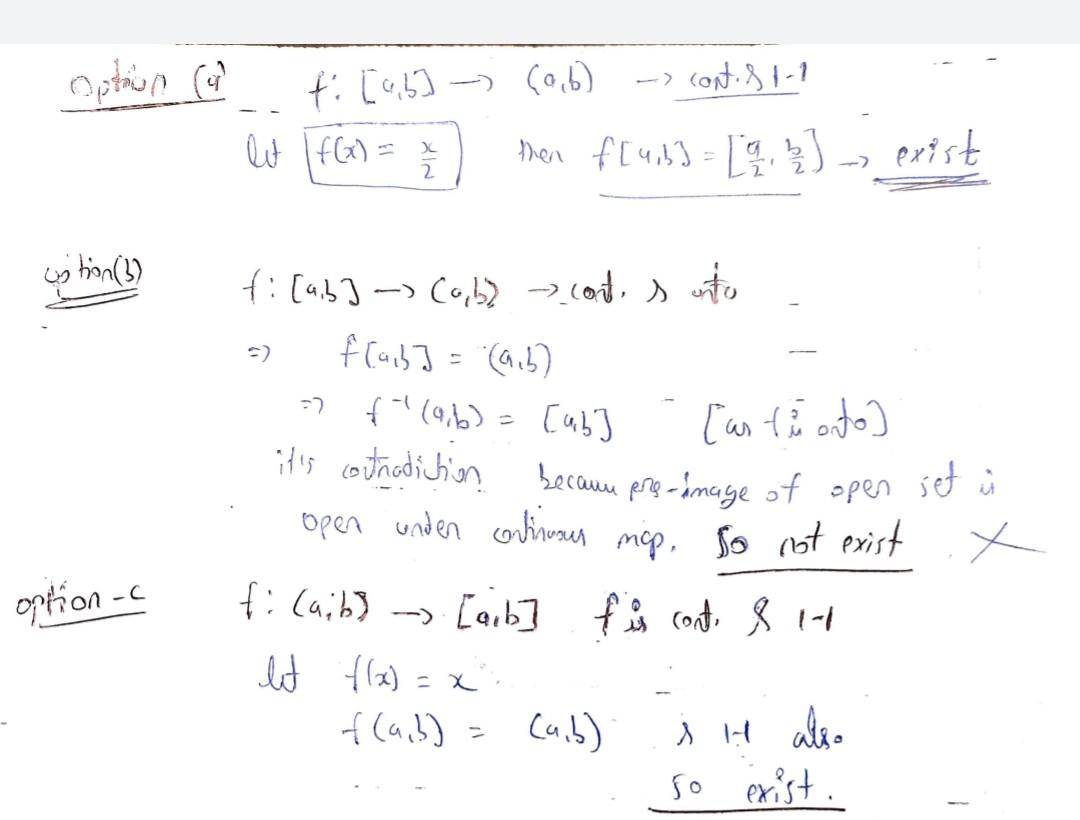 option (a) f: [a,b] → (a,b) → cont. & 1-1
let f(x) = x/2 then f[a,b] = [a/2, b/2] → exist
option(b) f: [a,b] → (a,b) → cont. & onto
⇒ f[a,b] = (a,b)
⇒ f⁻¹(a,b) = [a,b] [as f is onto]
it's contradiction because pre-image of open set is
open under continuous map. So not exist ×
option-c f: (a,b) → [a,b] f is cont. & 1-1
let f(x) = x
f(a,b) = (a,b) & 1-1 also
so exist.